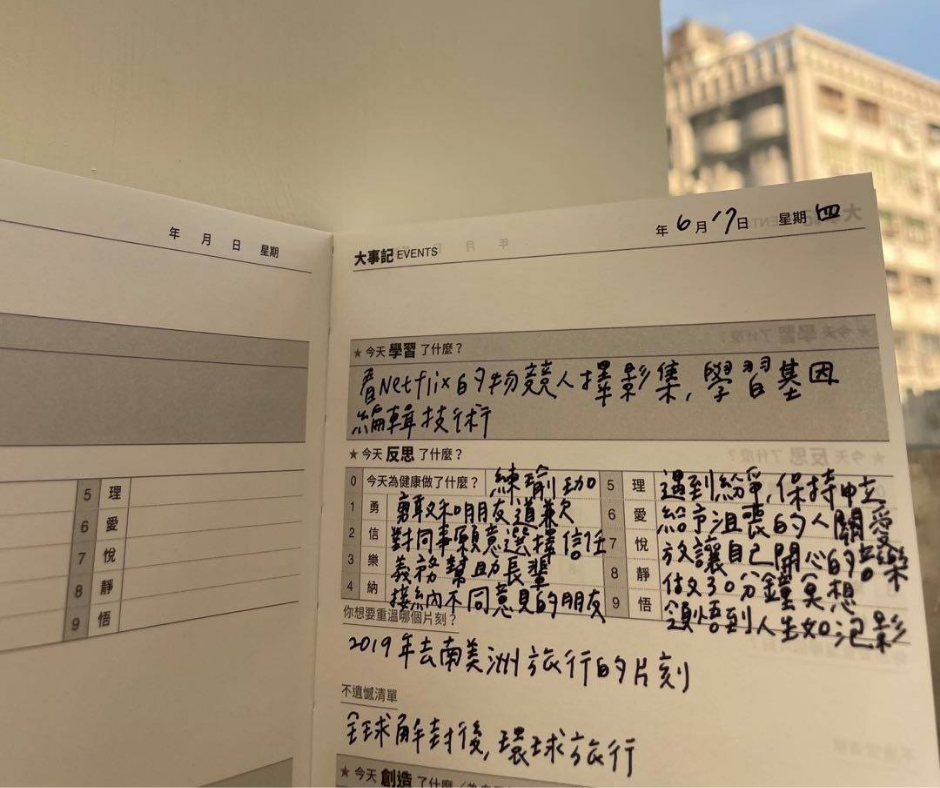 年 月 日 星期
5 理
6 愛
7 悅
8 靜
9 悟
大事記 EVENTS
年 6 月 17 日 星期 四
★ 今天 學習 了什麼？
看Netflix的物競人擇影集, 學習基因
編輯技術
★ 今天 反思 了什麼？
0 今天為健康做了什麼？ 練瑜珈
1 勇 勇敢和朋友道歉
2 信 對同事願意選擇信任
3 樂 義務幫助長輩
4 納 接納不同意見的朋友
5 理 遇到紛爭,保持中立
6 愛 給予沮喪的人關愛
7 悅 放讓自己開心的音樂
8 靜 做30分鐘冥想
9 悟 領悟到人生如泡影
你想要重溫哪個片刻？
2019年去南美洲旅行的片刻
不遺憾清單
全球解封後, 環球旅行
★ 今天 創造 了什麼